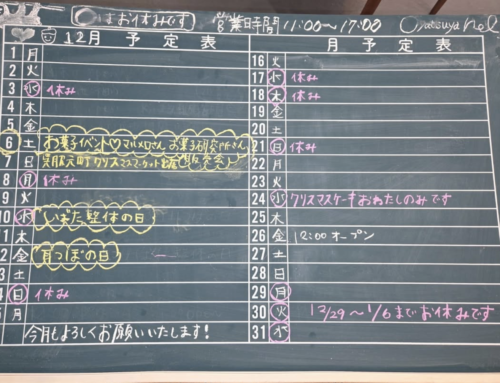 ○はお休みです 営業時間 11:00～17:00
12月 予定表
1 月
2 火
3 水 休み
4 木
5 金
6 土 お菓子イベント♡マルメロさん お菓子研究所さん
7 日 クリスマスマーケット出店(販売会)
8 月 休み
9 火
10 水 いぎた整体の日
1 木
2 金 耳つぼの日
3 土
4 日 休み
5 月
今月もよろしくお願いいたします!
月 予定表
16 火
17 水 休み
18 木 休み
19 金
20 土
21 日 休み
22 月
23 火
24 水 クリスマスケーキおわたしのみです
25 木
26 金 12:00オープン
27 土
28 日
29 月
30 火 12/29～1/6までお休みです
31 水